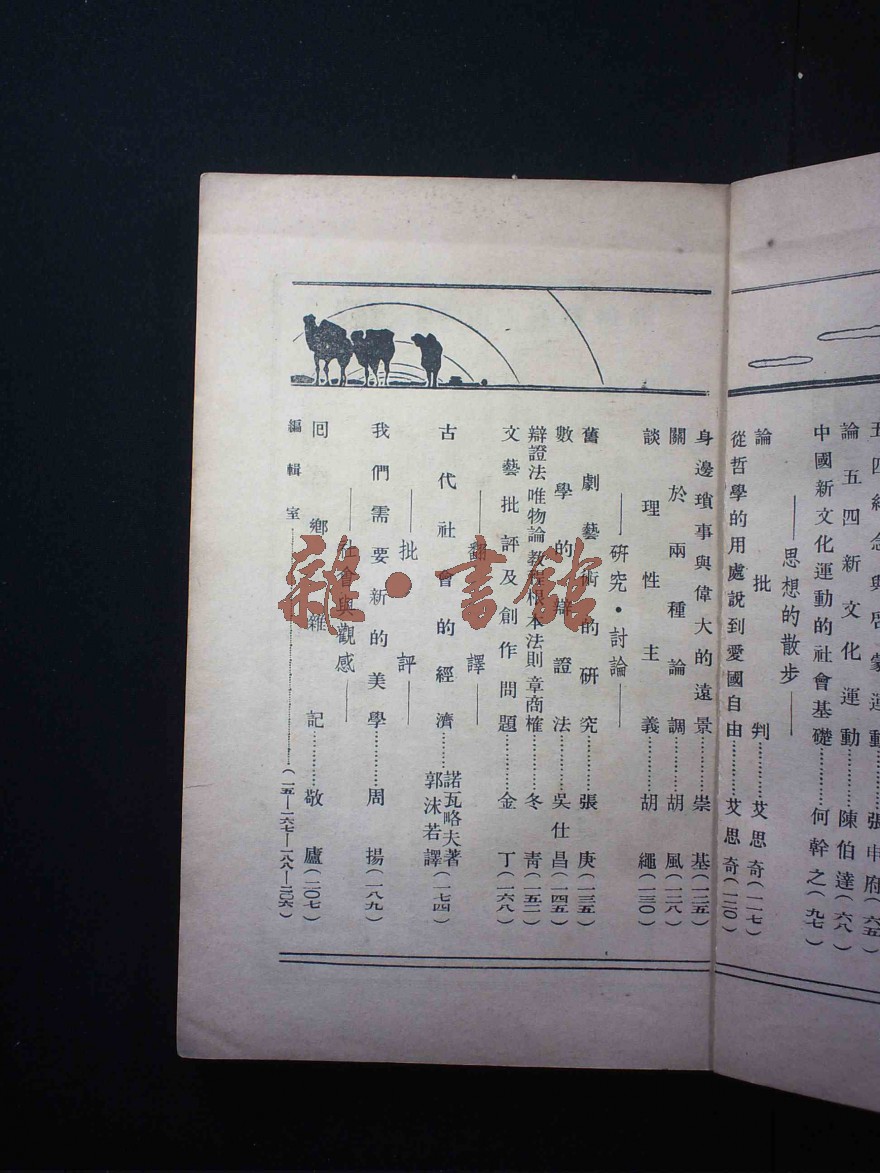 五四紀念與啓蒙運動………張申府(六五)
論五四新文化運動………陳伯達(六八)
中國新文化運動的社會基礎………何幹之(九七)
——思想的散步——
論批判………艾思奇(一一七)
從哲學的用處説到愛國自由………艾思奇(一二〇)
身邊瑣事與偉大的遠景………崇基(一二五)
關於兩種論調………胡風(一二八)
談理性主義………胡繩(一三〇)
——研究・討論——
舊劇藝術的研究………張庚(一三五)
數學的辯證法………吳仕昌(一四五)
辯證法唯物論教程根本法則章商榷………冬青(一五二)
文藝批評及創作問題………金丁(一六八)
——翻譯——
古代社會的經濟………諾瓦略夫著 郭沫若譯(一七四)
——批評——
我們需要新的美學………周揚(一八九)
——社會與觀感——
囘鄉雜記………敬廬(二〇七)
編輯室………(一五—一六七—一八八—二〇六)
雜・書館